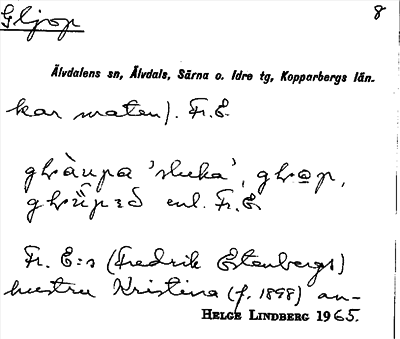 Gljop 8
Älvdalens sn, Älvdals, Särna o. Idre tg, Kopparbergs län.
kar maten). Fr. E.
'sluka',
enl. Fr. E
Fr. E:s (Fredrik Estenbergs)
hustru Kristina (f. 1898) an-
HELGE LINDBERG 1965.